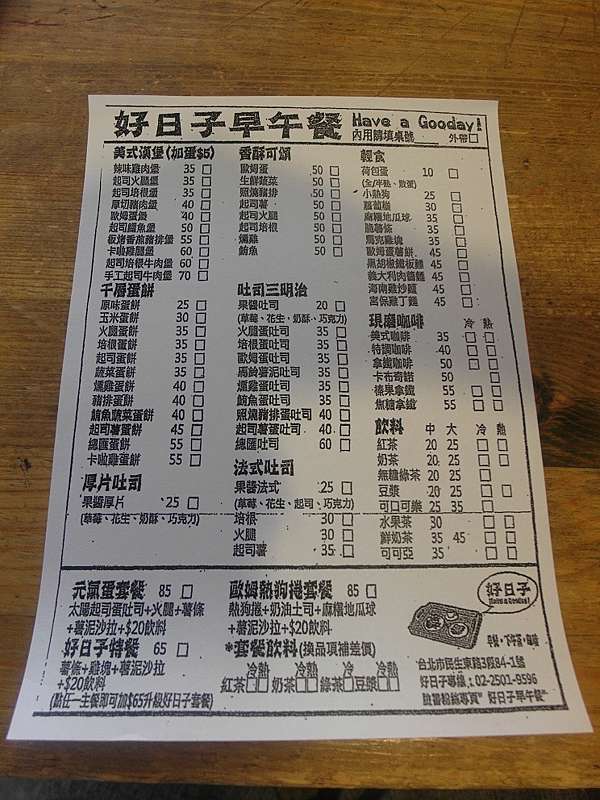 好日子早午餐 Have a Gooday!
內用請填桌號____ 外帶□
美式漢堡(加蛋$5)
辣味雞肉堡 35 □
起司火腿堡 35 □
起司培根堡 35 □
厚切豬肉堡 40 □
歐姆蛋堡 40 □
起司鱈魚堡 50 □
板烤香蔥豬排堡 55 □
卡啦雞腿堡 60 □
起司培根牛肉堡 60 □
手工起司牛肉堡 70 □
千層蛋餅
原味蛋餅 25 □
玉米蛋餅 30 □
火腿蛋餅 35 □
培根蛋餅 35 □
起司蛋餅 35 □
蔬菜蛋餅 35 □
燻雞蛋餅 40 □
豬排蛋餅 40 □
鮪魚蔬菜蛋餅 40 □
起司薯蛋餅 45 □
總匯蛋餅 55 □
卡啦雞蛋餅 55 □
厚片吐司
果醬厚片 25 □
(草莓、花生、奶酥、巧克力)
香酥可頌
歐姆蛋 50 □
生鮮蔬菜 50 □
照燒豬排 50 □
起司薯 50 □
起司火腿 50 □
起司培根 50 □
燻雞 50 □
鮪魚 50 □
吐司三明治
果醬吐司 20 □
(草莓、花生、奶酥、巧克力)
火腿蛋吐司 35 □
培根蛋吐司 35 □
歐姆蛋吐司 35 □
馬鈴薯泥吐司 35 □
燻雞蛋吐司 35 □
鮪魚蛋吐司 35 □
照燒豬排蛋吐司 40 □
起司薯蛋吐司 40 □
總匯吐司 60 □
法式吐司
果醬法式 25 □
(草莓、花生、起司、巧克力)
培根 30 □
火腿 30 □
起司薯 35 □
輕食
荷包蛋 10 □
(全/半熟、散蛋)
小熱狗 25 □
蘿蔔糕 30 □
麻糬地瓜球 35 □
脆薯條 35 □
馬克雞塊 35 □
歐姆蛋薯餅 45 □
黑胡椒鐵板麵 45 □
義大利肉醬麵 45 □
海南雞炒麵 45 □
宮保雞丁麵 45 □
現磨咖啡 冷 熱
美式咖啡 35 □ □
特調咖啡 40 □ □
拿鐵咖啡 50 □ □
卡布奇諾 50 □
榛果拿鐵 55 □ □
焦糖拿鐵 55 □ □
飲料 中 大 冷 熱
紅茶 20 25 □ □
奶茶 20 25 □ □
無糖綠茶 20 25 □
豆漿 20 25 □ □
可口可樂 25 35 □
水果茶 30 □ □
鮮奶茶 35 45 □ □
可可亞 35 □ □
元氣蛋套餐 85 □
太陽起司蛋吐司+火腿+薯條
+薯泥沙拉+$20飲料
好日子特餐 65 □
薯條+雞塊+薯泥沙拉
+$20飲料
(點任一主餐即可加$65升級好日子套餐)
歐姆熱狗捲套餐 85 □
熱狗捲+奶油土司+麻糬地瓜球
+薯泥沙拉+$20飲料
*套餐飲料(換品項補差價)
冷熱 冷熱 冷 冷熱
紅茶□□奶茶□□綠茶□豆漿□□
好日子
Have a Gooday!
早餐・下午茶・咖啡
台北市民生東路3段84-1號
好日子專線:02-2501-9596
臉書粉絲專頁"好日子早午餐"